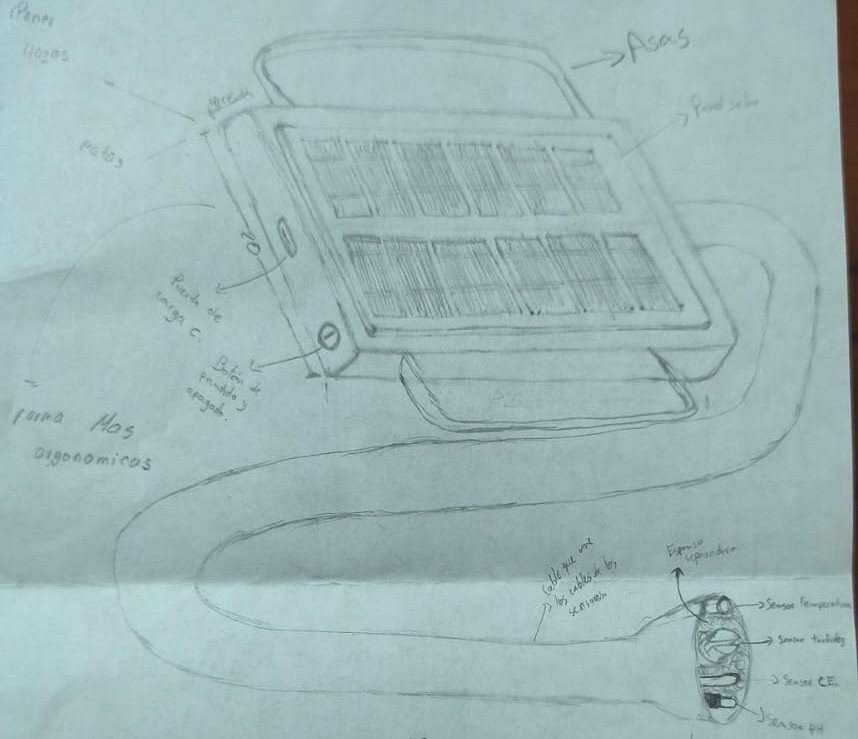 Poner
Asas
Panel solar
patas
20
Puerto de
carga C.
Botón de
prendido y
apagado.
forma Mas
argonomicas
Cable que une
los cables de los
sensores
Sensor Temperatura
Sensor turbidez
Sensor C.E.
Sensor pH